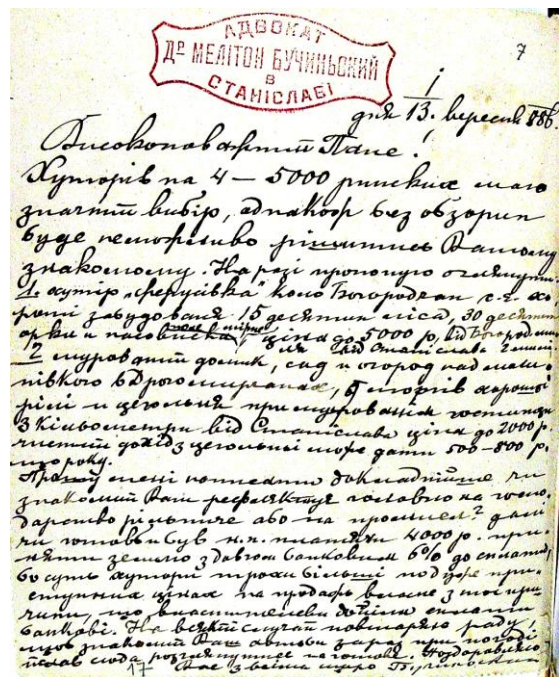 АДВОКАТ
Др МЕЛІТОН БУЧИНЬСКИЙ
В
СТАНІСЛАВІ
7
дня 13. вересня 886
Високоповажний Пане!
Хуторів на 4 — 5000 ринских маю
значний вибір, однакож без обзорин
буде неможливо рішитись Вашому
знакомому. На разі пропоную оглянути
1. хутір „ коло Богородчан с. є. хо
роші забудованя 15 десятин ліса, 30 десятин
орки и пасовиска, ціна до 5000 р, від Богородчан
від Станіслава 2 милі
2 мурований домик, сад и огород над
5 моргів хорошої
рілі и цегольня при мурованім гостинци
3 кільометри від Станіслава ціна до 2000 р.
чистий дохід з цегольні може дати 500–800 р.
що року.
Прошу мені написати докладнійше чи
знакомий Ваш рефлєктує головно на госпо
дарство рільниче або на промисел? далі
чи готов би був н.п. платячи 4000 р. при
няти землю з довгом банковим 6% до сплати,
бо суть хутори трохи більші по дуже при
ступних цінах на продаж власне з тої при
чини, що
банкові. На всякий случай повторяю раду,
щоб знакомий Ваш зараз при погоді
сюда
17